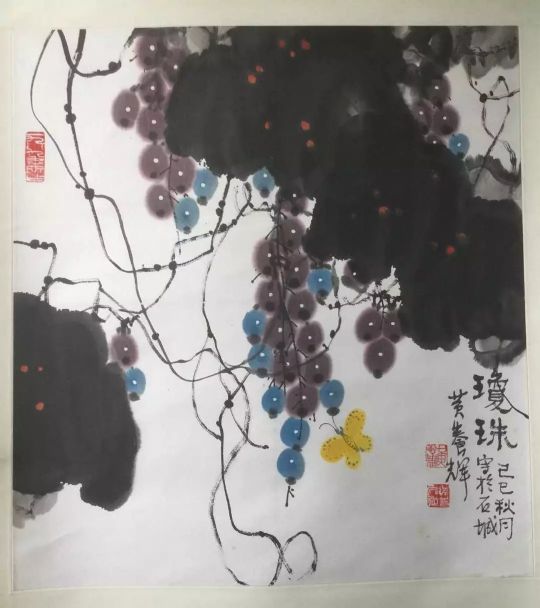 瓊珠
己巳秋月
寫於石城
黄養輝